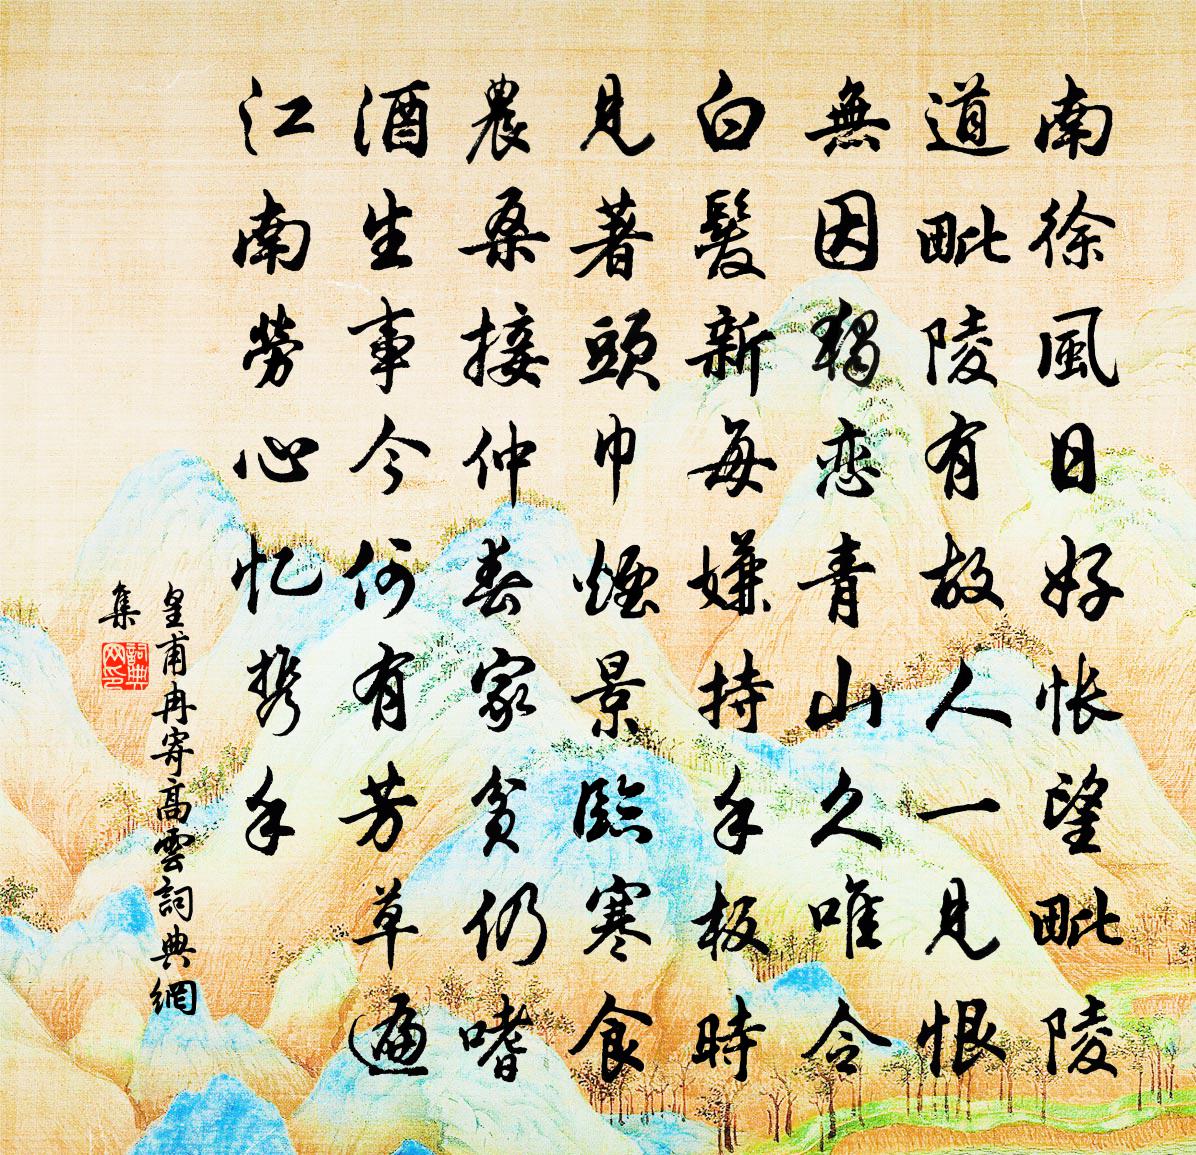 南徐風日好怅望毗陵
道毗陵有故人一見恨
無因獨戀青山久唯令
白髮新每嫌持手板時
見著頭巾煙景臨寒食
農桑接仲春家貧仍嗜
酒生事今何有芳草遍
江南勞心忆携手
皇甫冉寄高雲詞典網
集
詞典网印